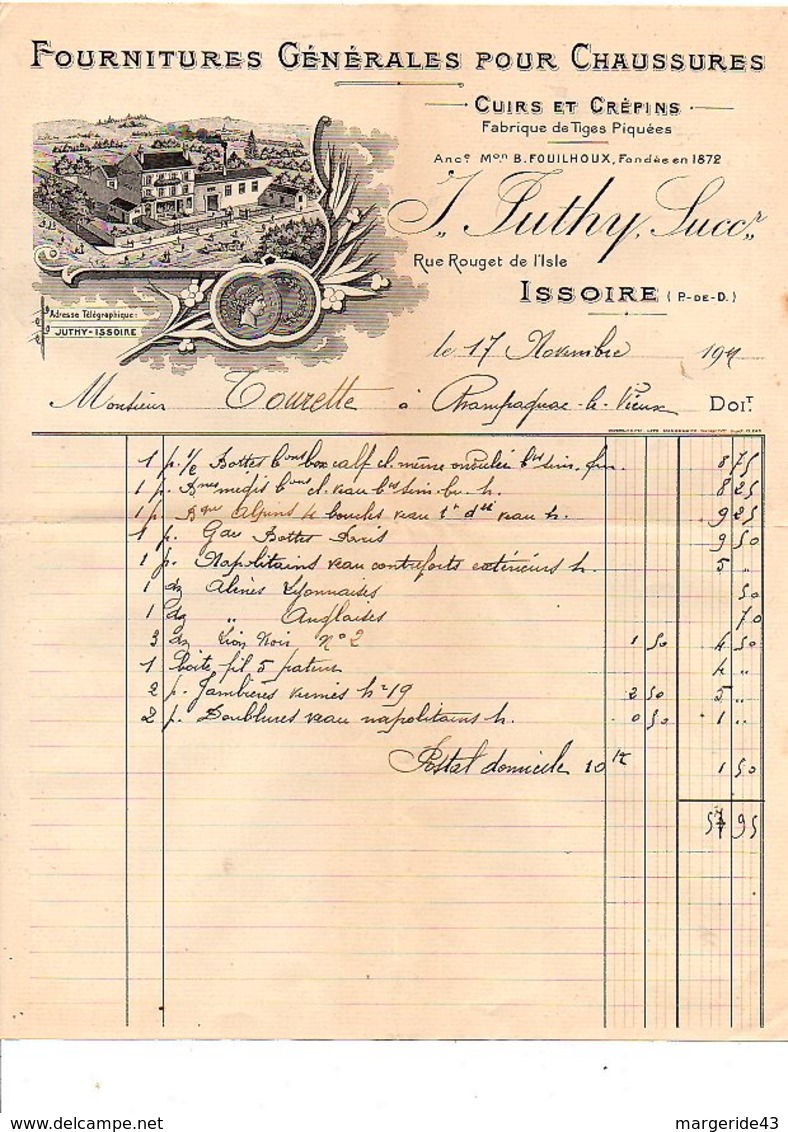 FOURNITURES GÉNÉRALES POUR CHAUSSURES
CUIRS ET CRÉPINS
Fabrique de Tiges Piquées
Ancᵉ Mᵒⁿ B. FOUILHOUX, Fondée en 1872
J. Juthy, Succʳ
Rue Rouget de l'Isle
ISSOIRE (P.-DE-D.)
Adresse Télégraphique:
JUTHY-ISSOIRE
le 17 Novembre 191
Monsieur Tourette à Champagnac-le-Vieux DOIT
1 p. 1/2 Bottes bᵒⁿˢ box calf cl. même 8 75
1 p. mégis bᵒⁿˢ cl. veau h. 8 25
1 p. Alpins 4 boucles veau 1ʳ veau h. 9 25
1 p. Gᵈᵉˢ Bottes Paris 9 50
1 p. Napolitains veau contreforts extérieurs h. 5 "
1 dz Alênes Lyonnaises 50
1 dz " Anglaises 70
3 dz Lion Noir Nº 2 1 50 4 50
1 boite fil 5 4 "
2 p. Jambières vernies hʳ 19 2 50 5 "
2 p. Doublures veau napolitains h. 0 50 1 "
Postal domicile 10 ᵏ 1 50
57 95
margeride43